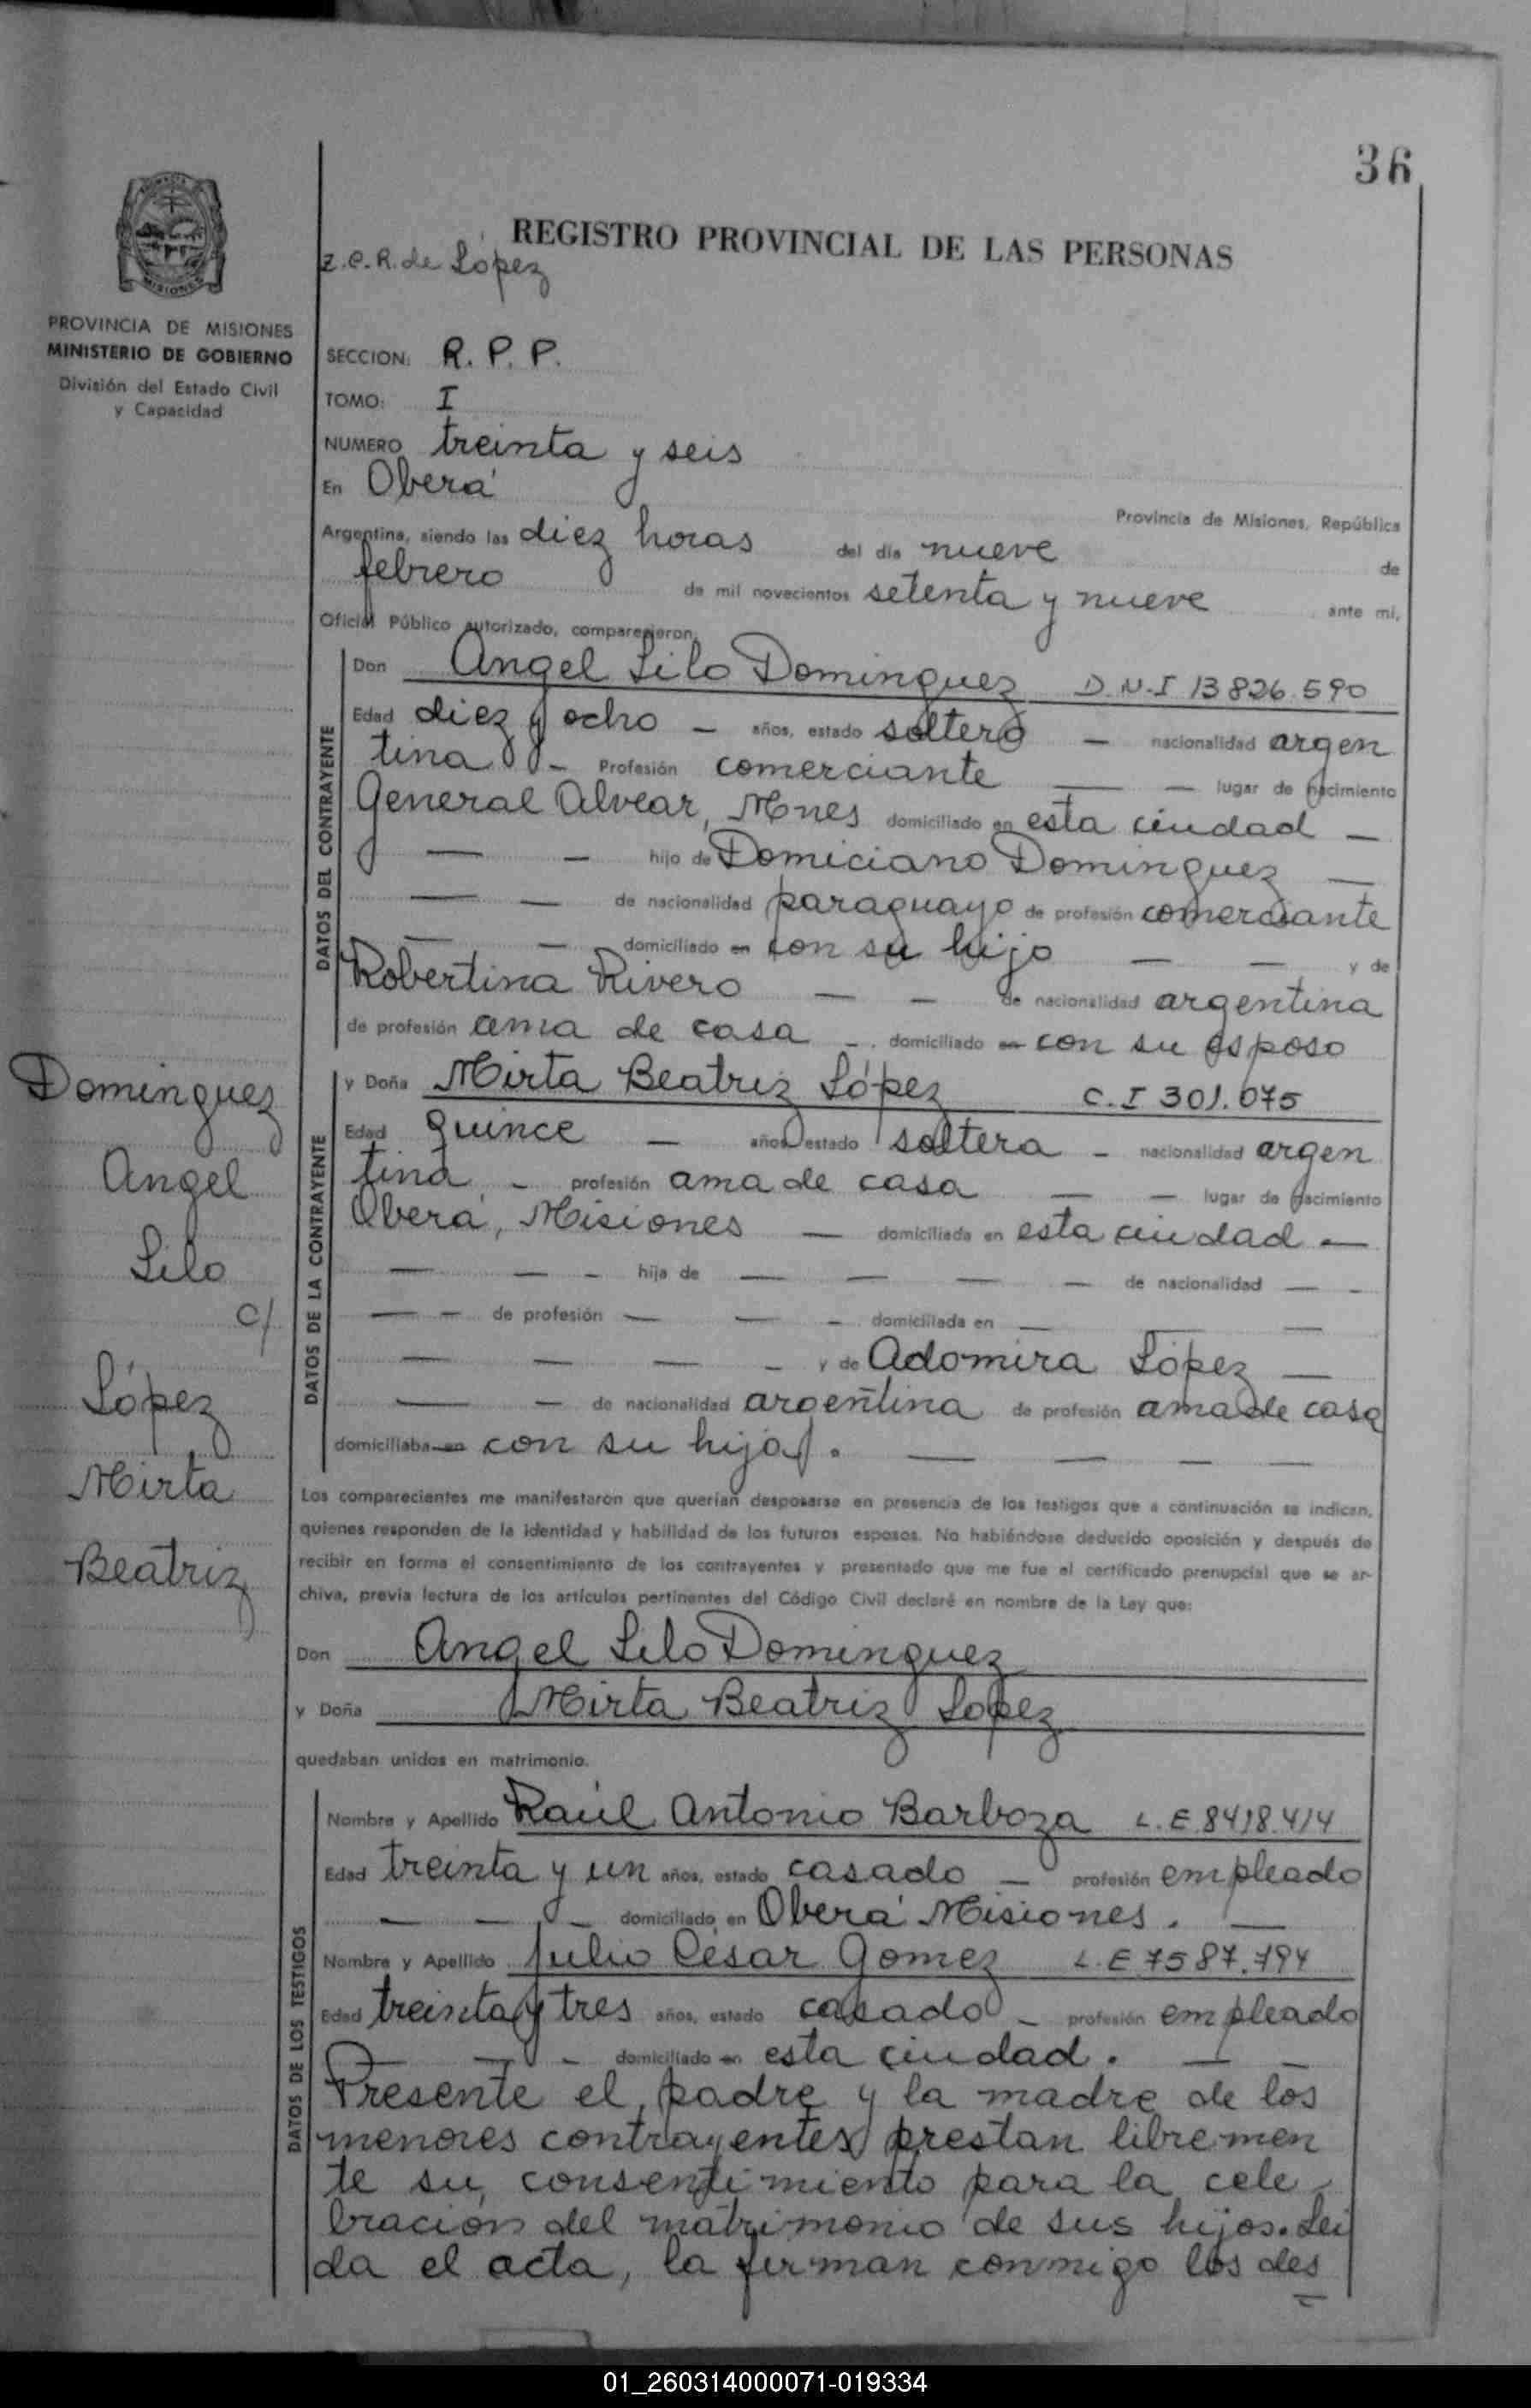 36
REGISTRO PROVINCIAL DE LAS PERSONAS
Z.C.R. de López
PROVINCIA DE MISIONES
MINISTERIO DE GOBIERNO
División del Estado Civil
y Capacidad
SECCION: R. P. P.
TOMO: I
NUMERO treinta y seis
En Oberá
Provincia de Misiones, República
Argentina, siendo las diez horas del día nueve de
febrero de mil novecientos setenta y nueve ante mí,
Oficial Público autorizado, comparecieron:
DATOS DEL CONTRAYENTE
Don Angel Lilo Dominguez D.N.I 13826.590
Edad diez y ocho — años, estado soltero — nacionalidad argen
tina — Profesión comerciante — — lugar de nacimiento
General Alvear, Mnes domiciliado en esta ciudad —
— — hijo de Domiciano Dominguez —
— — de nacionalidad paraguayo de profesión comerciante
— — domiciliado en con su hijo — — y de
Robertina Rivero — — de nacionalidad argentina
de profesión ama de casa - domiciliado en con su esposo
DATOS DE LA CONTRAYENTE
y Doña Mirta Beatriz López C.I 301.075
Edad quince — años, estado soltera - nacionalidad argen
tina - profesión ama de casa — — lugar de nacimiento
Oberá, Misiones — domiciliada en esta ciudad —
— — - hija de — — — — de nacionalidad — -
— — de profesión — — - domiciliada en — — —
— — — - y de Adomira López —
— — de nacionalidad argentina de profesión ama de casa
domiciliaba en con su hija. — — — —
Dominguez
Angel
Lilo
c/
López
Mirta
Beatriz
Los comparecientes me manifestaron que querían desposarse en presencia de los testigos que a continuación se indican,
quienes responden de la identidad y habilidad de los futuros esposos. No habiéndose deducido oposición y después de
recibir en forma el consentimiento de los contrayentes y presentado que me fue el certificado prenupcial que se ar-
chiva, previa lectura de los artículos pertinentes del Código Civil declaré en nombre de la Ley que:
Don Angel Lilo Dominguez
y Doña Mirta Beatriz Lopez
quedaban unidos en matrimonio.
DATOS DE LOS TESTIGOS
Nombre y Apellido Raúl Antonio Barboza L.E 8418.414
Edad treinta y un años, estado casado — profesión empleado
— — — domiciliado en Oberá Misiones. —
Nombre y Apellido Julio César Gomez L.E 7587.794
Edad treinta y tres años, estado casado - profesión empleado
— — - domiciliado en esta ciudad. — —
Presente el padre y la madre de los
menores contrayentes prestan libremen
te su consentimiento para la cele
bracion del matrimonio de sus hijos. Lei
da el acta, la firman conmigo los des
01_260314000071-019334